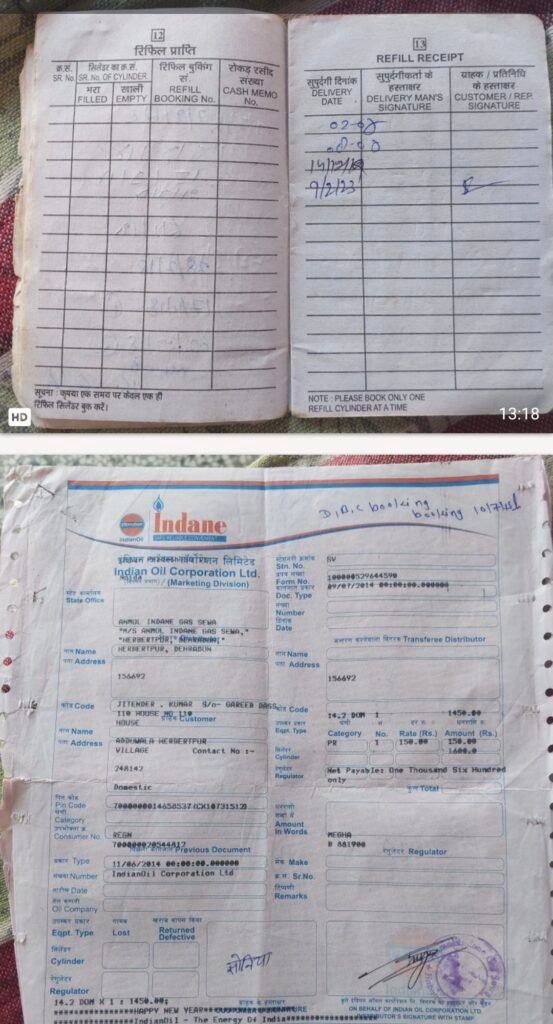 12
रिफिल प्राप्ति
क्र.सं. सिलेंडर का क्र.सं. रिफिल बुकिंग सं. रोकड़ रसीद संख्या
SR. No. SR. No. OF CYLINDER REFILL BOOKING No. CASH MEMO No.
भरा खाली
FILLED EMPTY
सूचना : कृपया एक समय पर केवल एक ही
रिफिल सिलेंडर बुक करें।
HD
13
REFILL RECEIPT
सुपुर्दगी दिनांक सुपुर्दगीकर्ता के हस्ताक्षर ग्राहक / प्रतिनिधि के हस्ताक्षर
DELIVERY DATE DELIVERY MAN'S SIGNATURE CUSTOMER / REP. SIGNATURE
9/2/23
NOTE : PLEASE BOOK ONLY ONE
REFILL CYLINDER AT A TIME
13:18
IndianOil
Indane
D.B.C booking
booking
इंडियन ऑयल कॉर्पोरेशन लिमिटेड
Indian Oil Corporation Ltd.
(Marketing Division)
State Office
ANMOL INDANE GAS SEWA
"M/S ANMOL INDANE GAS SEWA,"
"HERBERTPUR, DEHRADUN"
HERBERTPUR, DEHRADUN
नाम Name
पता Address
156692
कोड Code
JITENDER . KUMAR S/o- GAREEB DASS
110 HOUSE NO 110
ग्राहक Customer
HOUSE
नाम Name
पता Address
ADDUWALA HERBERTPUR
VILLAGE Contact No :-
248142
Domestic
पिन कोड
Pin Code
7000000014658537(CX10731512)
Category
उपभोक्ता क्र.
Consumer No.
REGN
7000000020544812
Previous Document
प्रकार Type
11/06/2014 00:00:00.000000
संख्या Number
IndianOil Corporation Ltd
तारीख Date
Oil Company
उपस्कर प्रकार
Eqpt. Type Lost Returned Defective
सिलेंडर
Cylinder
रेगुलेटर
Regulator
14.2 DOM X 1 : 1450.00;
HAPPY NEW YEAR
IndianOil - The Energy Of India
Stn. No.
SV
Form No.
100000529644590
Doc. Type
09/07/2014 00:00:00.000000
संख्या
Number
दिनांक
Date
Transferee Distributor
नाम Name
पता Address
156692
कोड Code
14.2 DOM 1 1450.00
उपस्कर प्रकार
Eqpt. Type Category No. Rate (Rs.) Amount (Rs.)
PR 1 150.00 150.00
सिलेंडर
Cylinder
1600.0
रेगुलेटर
Regulator
Net Payable: One Thousand Six Hundred
only
कुल Total
Amount
in Words
MEGHA
B 881900
रेगुलेटर Regulator
मेक Make
क्र.सं. Sr.No.
टिप्पणी
Remarks
सोनिया
ग्राहक के हस्ताक्षर
ON BEHALF OF INDIAN OIL CORPORATION LTD.
DISTRIBUTOR'S SIGNATURE WITH STAMP